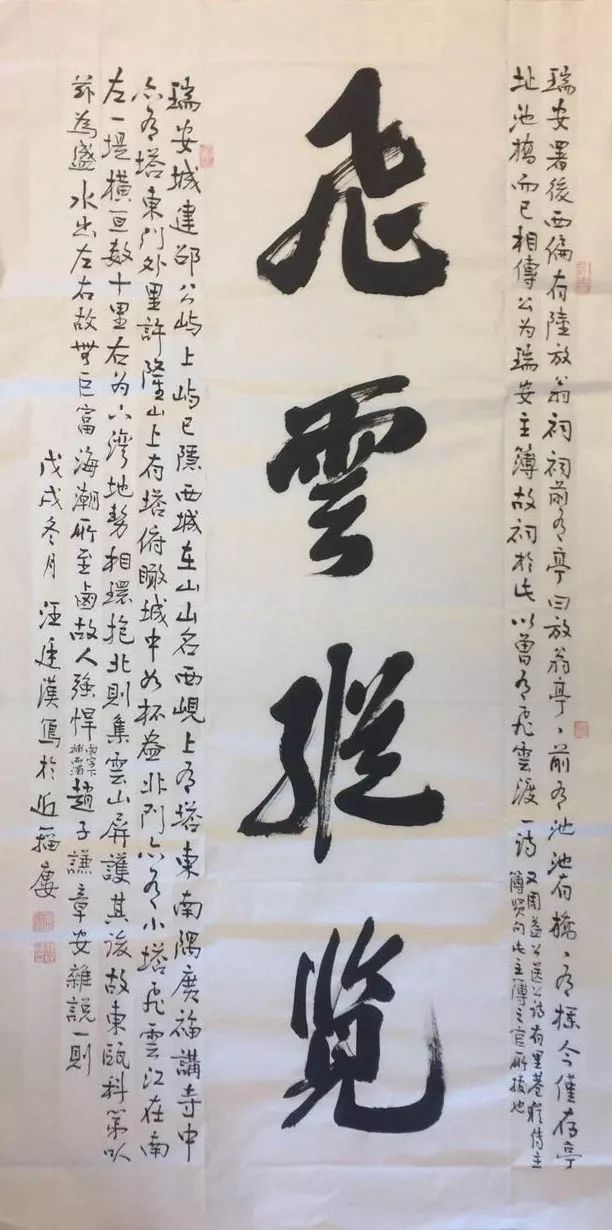 瑞安署後西偏有陸放翁祠祠前有亭曰放翁亭、前有池池有橋、有標今僅存亭
址池橋而已相傳公为瑞安主簿故祠於此以曾有飛雲渡一詩
又周益公送公詩有里巷猶傳主
簿賢句此主簿之官所據也
飛雲縱览
瑞安城建邵公屿上屿已隱西城在山山名西峴上有塔東南隅廣福講寺中
亦有塔東門外里許隆山上有塔俯瞰城中如杯益北門亦有小塔飛雲江在南
左一堤橫亘數十里右为八灣地勢相環抱北則集雲山屏護其後故東甌科第以
邑為盛水出左右故無巨富海潮所至鹵故人強悍
趙子謙章安雜說一則
戊戌冬月汪廷漢寫於近福廔